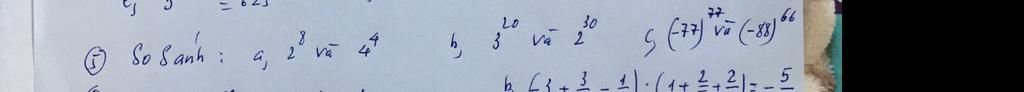 = 625
⑤ So sánh : a, 2⁸ và 4⁴ b, 3²⁰ và 2³⁰ c, (-77)⁷⁷ và (-88)⁶⁶